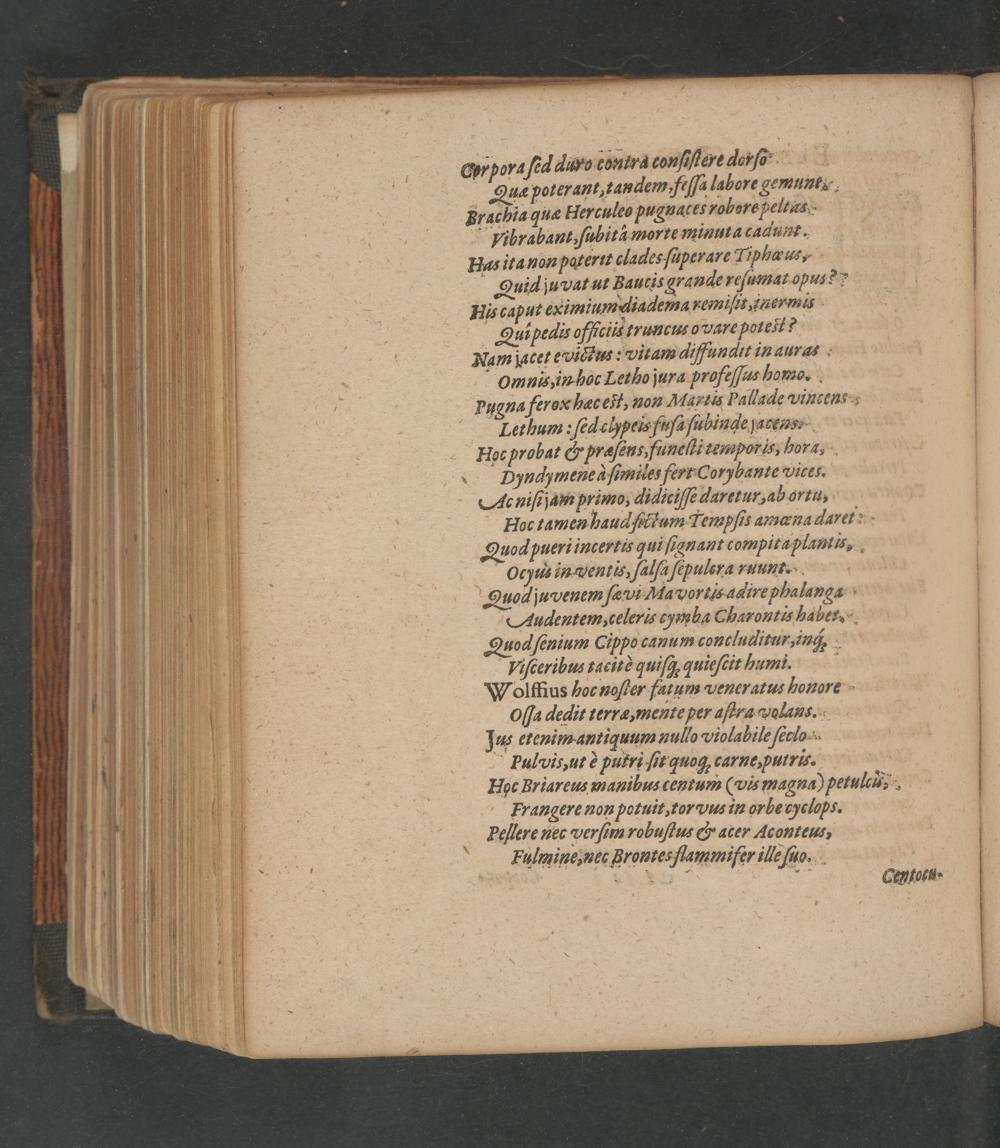 Corpora sed duro contra consistere dorso
Quæ poterant, tandem, fessa labore gemunt,
Brachia quæ Herculeo pugnaces robore peltas
Vibrabant, subitâ morte minuta cadunt.
Has ita non poterit clades superare Tiphœus,
Quid juvat ut Baucis grande resumat opus?
His caput eximium diadema remisit, inermis
Quî pedis officiis truncus ovare potest?
Nam jacet evictus: vitam diffundit in auras
Omnis, in hoc Letho jura professus homo.
Pugna ferox hæc est, non Martis Pallade vincens
Lethum: sed clypeis fusa subinde jacens.
Hoc probat & præsens, funesti temporis, hora,
Dyndymene à similes fert Corybante vices.
Ac nisi jam primo, didicisse daretur, ab ortu,
Hoc tamen haud sectum Tempsis amœna daret:
Quod pueri incertis qui signant compita plantis,
Ocyus in ventis, salsa sepulcra ruunt.
Quod juvenem sævi Mavortis adire phalanga
Audentem, celeris cymba Charontis habet,
Quod senium Cippo canum concluditur, inq́;
Visceribus tacitè quisq; quiescit humi.
Wolffius hoc noster fatum veneratus honore
Ossa dedit terræ, mente per astra volans.
Jus etenim antiquum nullo violabile seclo
Pulvis, ut è putri sit quoq; carne, putris.
Hoc Briareus manibus centum (vis magna) petulcis,
Frangere non potuit, torvus in orbe cyclops.
Pellere nec versim robustus & acer Aconteus,
Fulmine, nec Brontes flammifer ille suo.
Centocu-